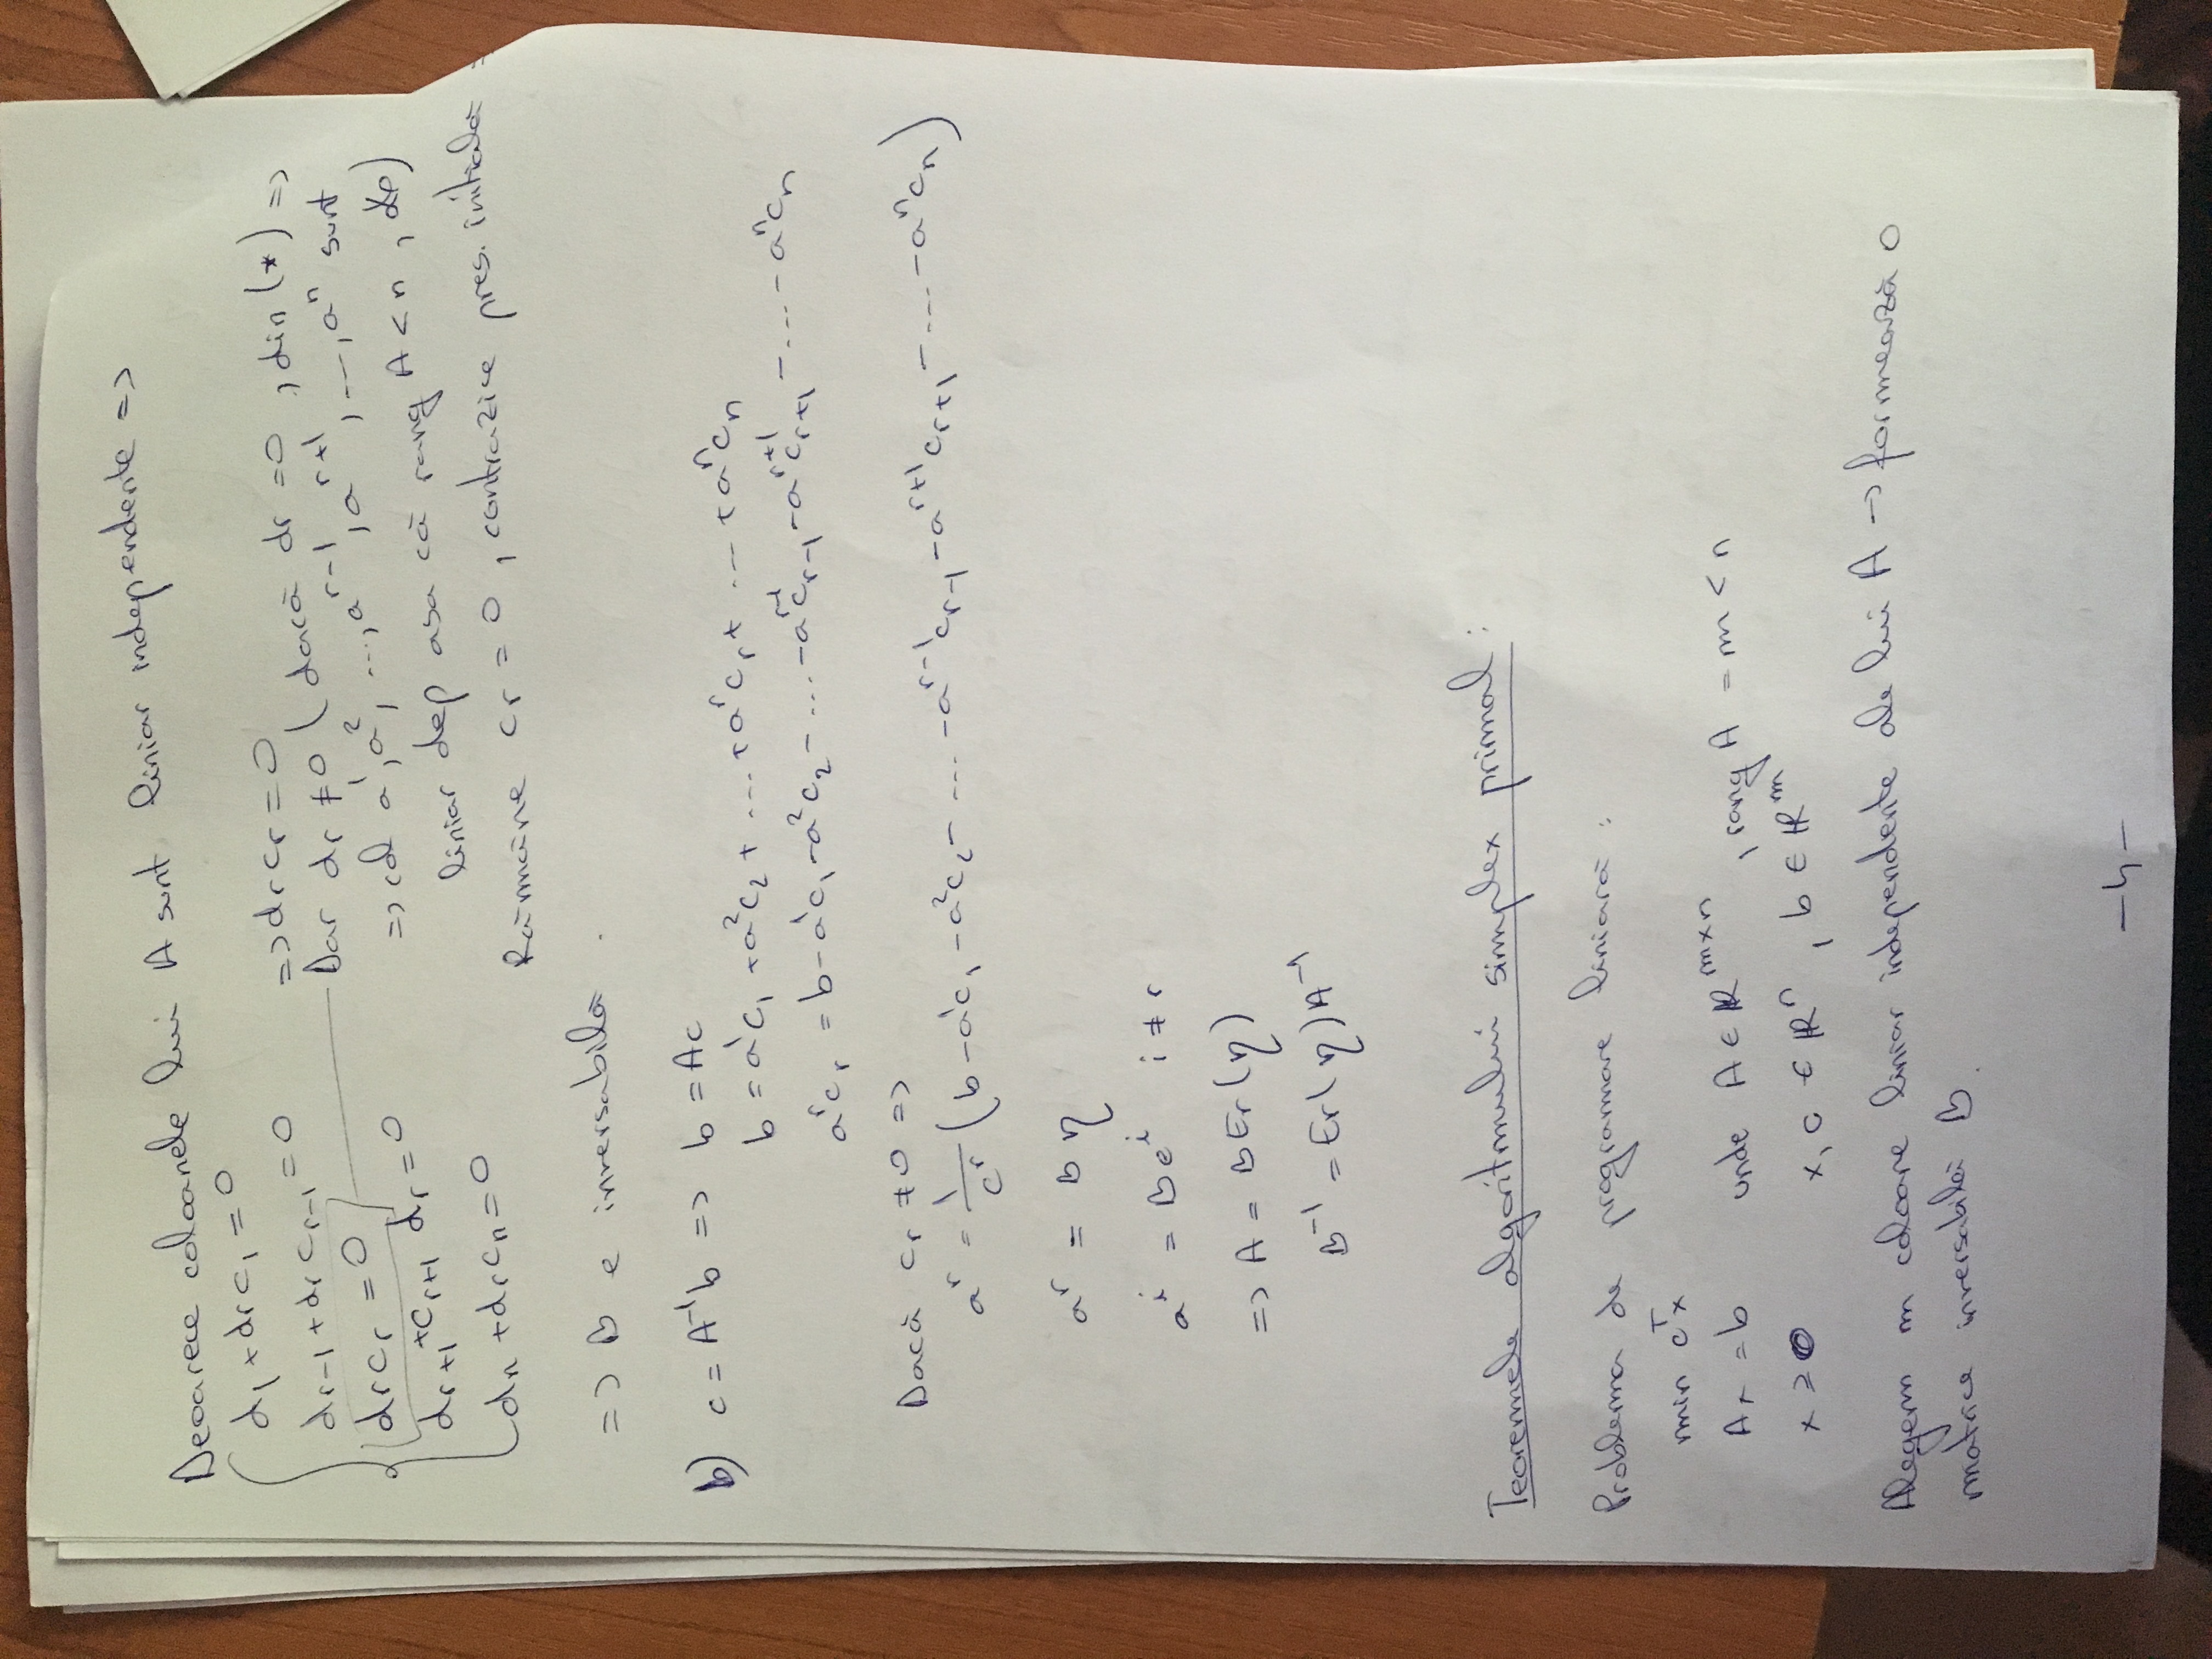 Deoarece coloanele lui A sunt liniar independente =>
d1 + drc1 = 0
dr-1 + drcr-1 = 0
drcr = 0
dr+1 + cr+1 dr = 0
dn + drcn = 0
=> drcr = 0
Dar dr ≠ 0 (dacă dr = 0, din (*) =>
=> că a¹, a², ..., a^(r-1), a^(r+1), ..., aⁿ sunt
liniar dep asa că rang A < n,
Rămâne cr = 0, contrazice pres. initială
=> B e inversabilă.
b) c = A⁻¹b => b = Ac
b = a¹c1 + a²c2 + .... + a^r cr + ... + aⁿcn
a^r cr = b - a¹c1 - a²c2 - .... - a^(r-1)cr-1 - a^(r+1)cr+1 - .... - aⁿcn
Dacă cr ≠ 0 =>
a^r = 1/cr (b - a¹c1 - a²c2 - ... - a^(r-1)cr-1 - a^(r+1)cr+1 - .... - aⁿcn)
a^r = B η
a^i = B e^i i ≠ r
=> A = B Er(η)
B⁻¹ = Er(η) A⁻¹
Teoremele algoritmului simplex primal:
Problema de programare liniară:
min cᵀx
Ax = b unde A ∈ ℝ^(m×n), rang A = m < n
x ≥ 0 x, c ∈ ℝⁿ, b ∈ ℝ^m
Alegem m coloane liniar independente ale lui A -> formează o
matrice inversabilă B.
-4-